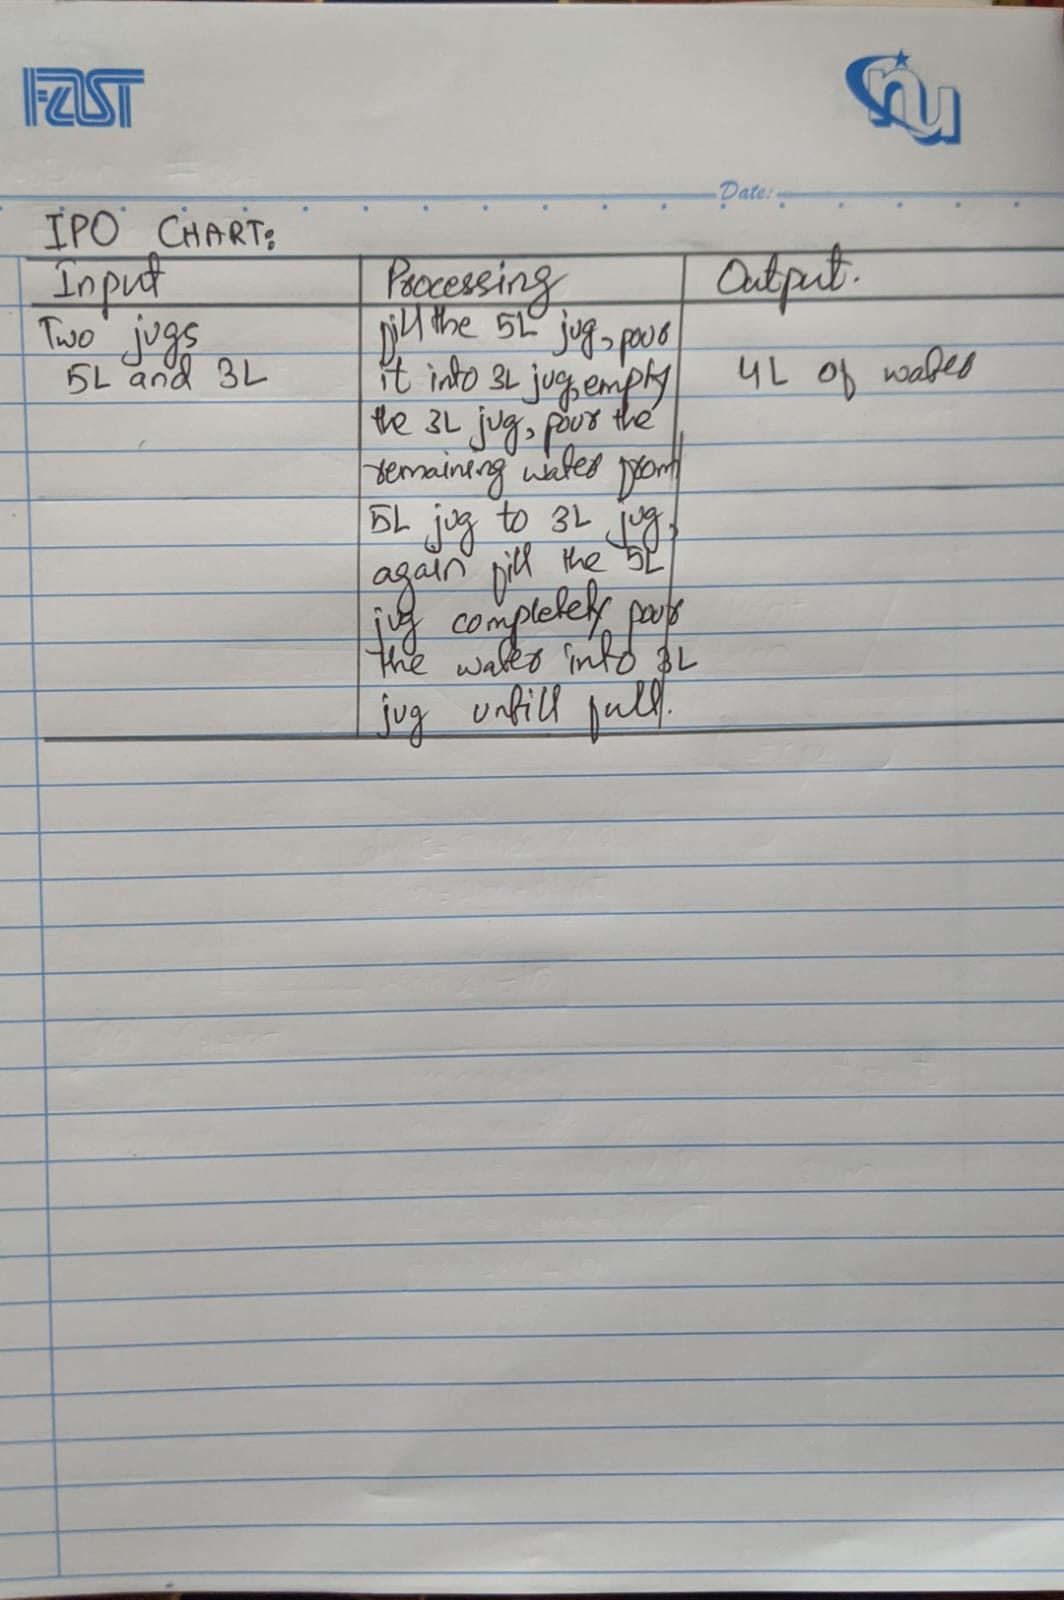 FAST
nu
Date:
IPO CHART:
Input
Processing
Output.
Two jugs
5L and 3L
fill the 5L jug, pour
it into 3L jug, empty
the 3L jug, pour the
remaining water from
5L jug to 3L jug,
again fill the 5L
jug completely pour
the water into 3L
jug untill full.
4L of water